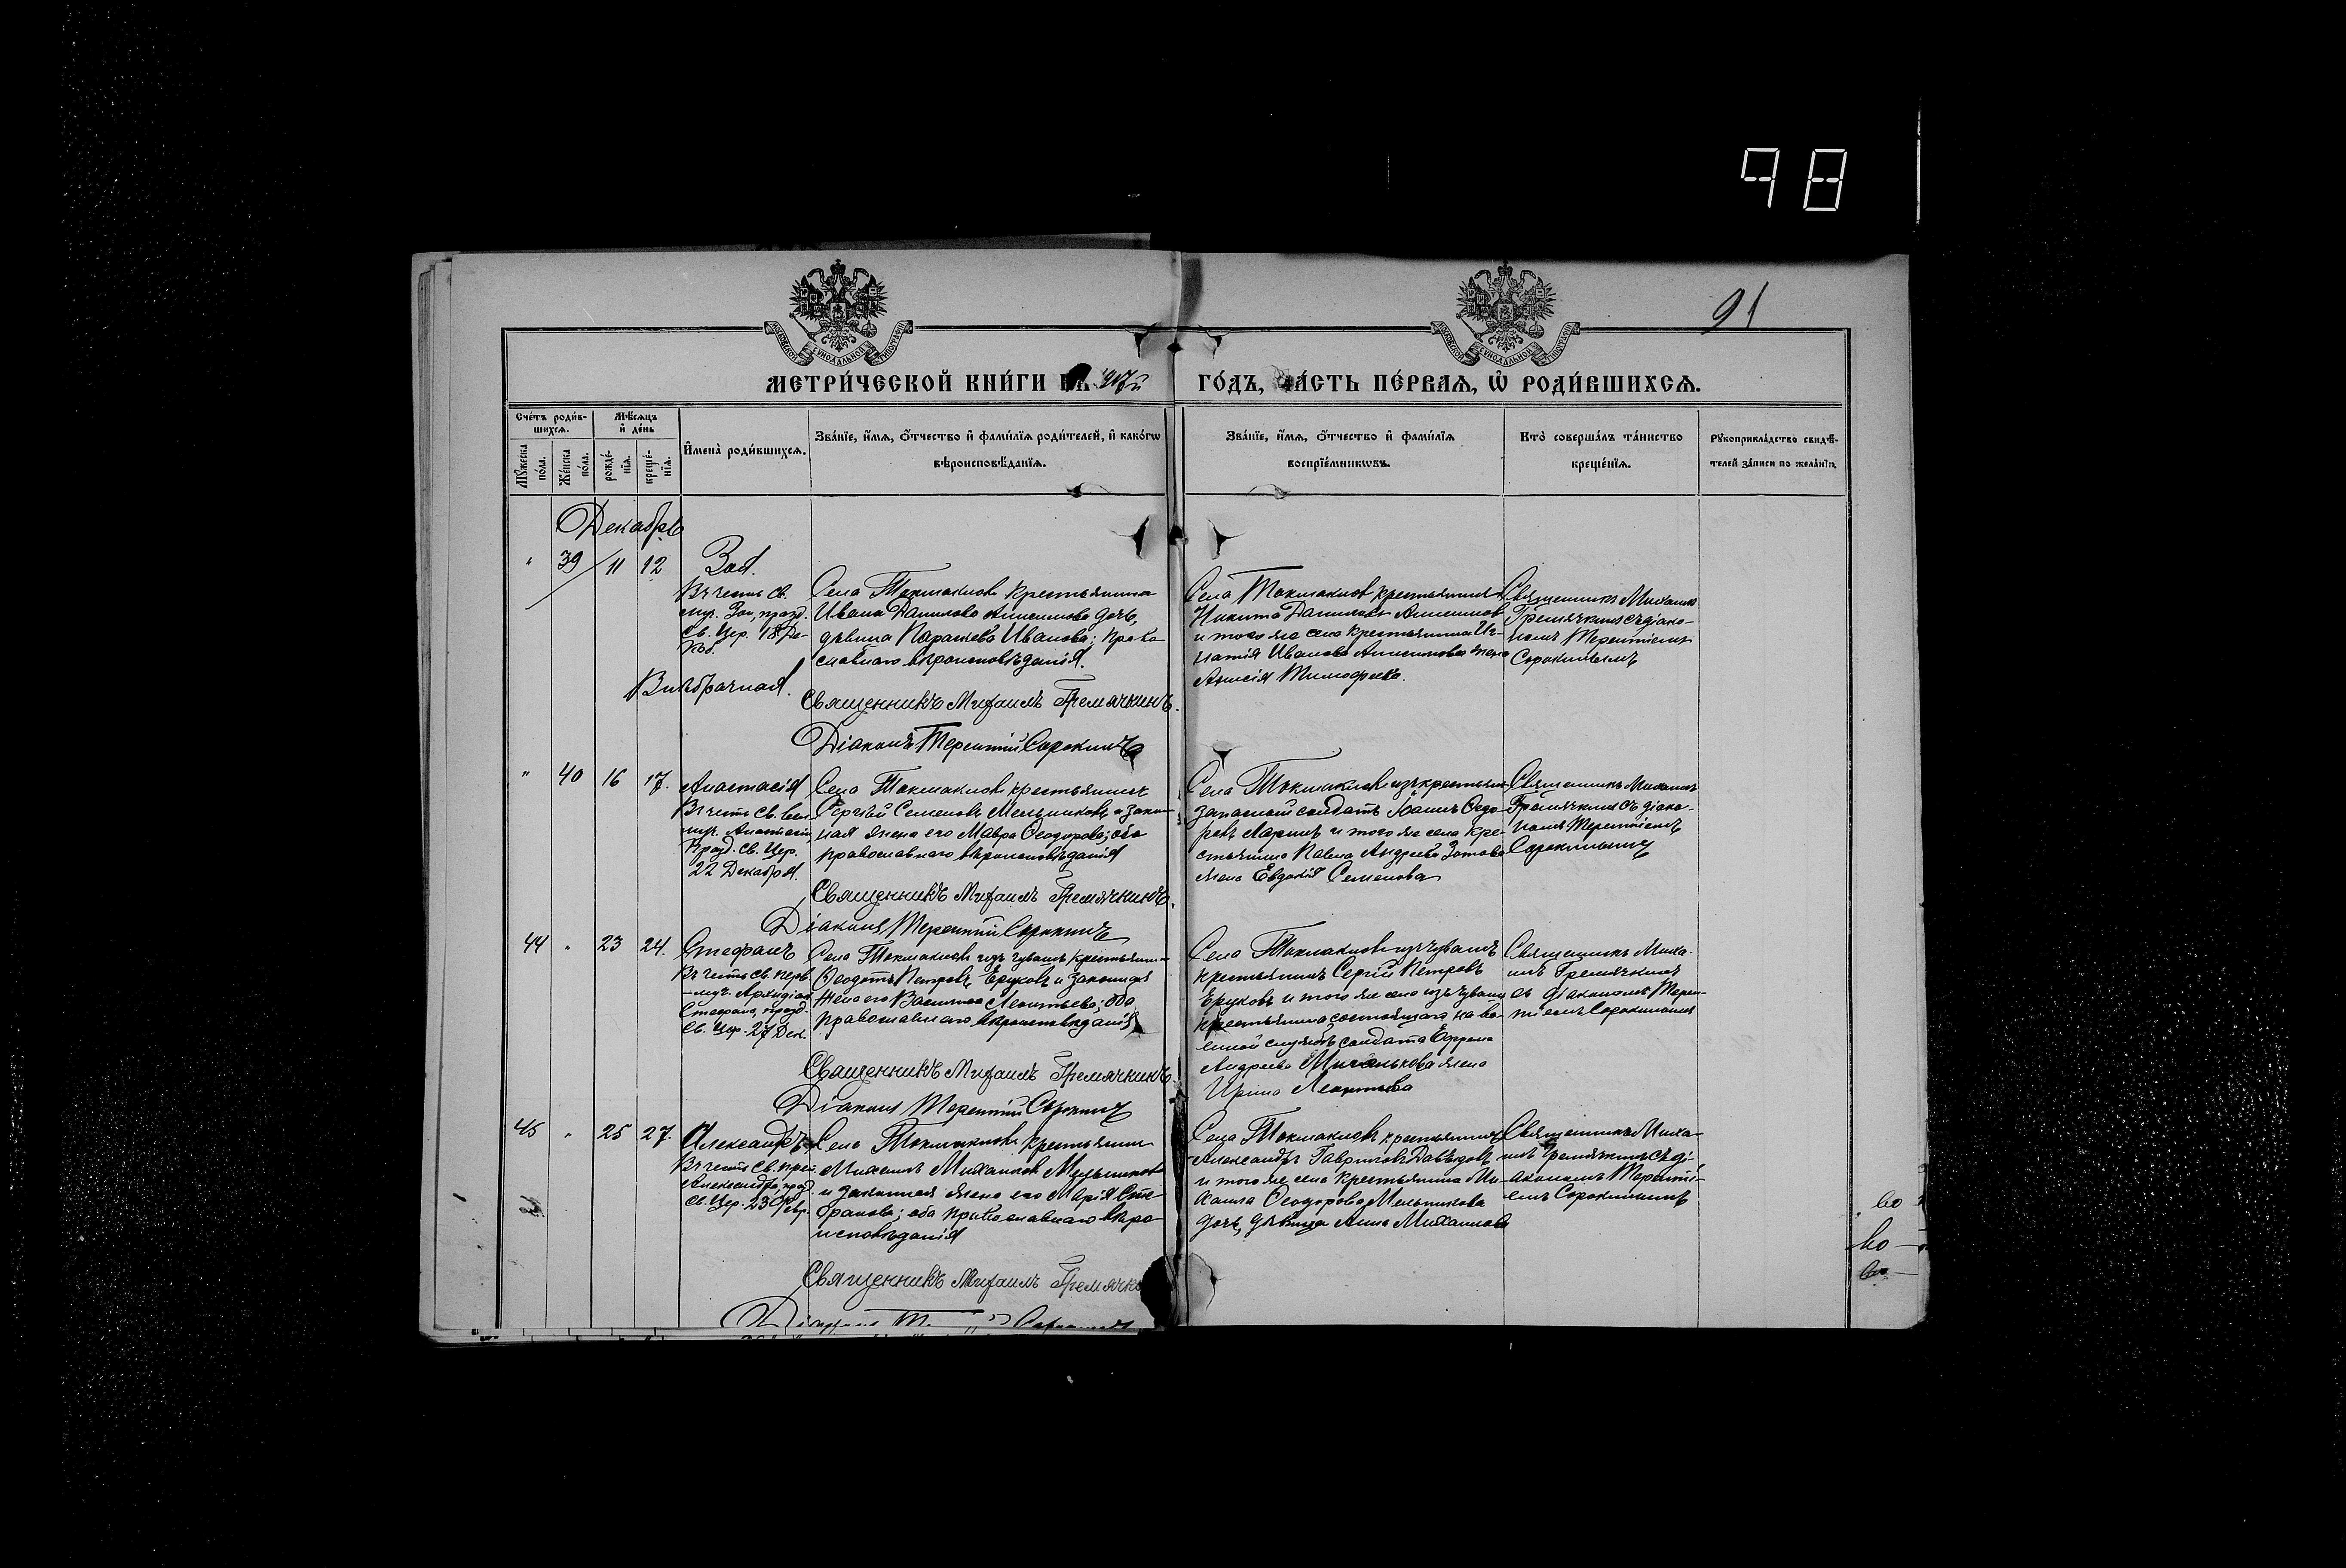 98
91
МОСКОВСКОЙ СѴНОДАЛЬНОЙ ТИПОГРАФІИ
МОСКОВСКОЙ СѴНОДАЛЬНОЙ ТИПОГРАФІИ
МЕТРИ́ЧЕСКОЙ КНИ́ГИ 917й ГО́ДЪ, ЧА́СТЬ ПЕ́РВАѦ, Ѡ҆ РОДИ́ВШИХСѦ.
Сче́тъ роди́в-
шихсѧ.
Мꙋ́жеска по́ла.
Же́нска по́ла.
Мѣ́сѧцъ
и҆ де́нь
рожде́-
нїѧ.
креще́-
нїѧ.
И҆мена̀ роди́вшихсѧ.
Зва́нїе, и҆́мѧ, ѻ҆́тчество и҆ фами́лїѧ роди́телей, и҆ како́гѡ
вѣроисповѣ́данїѧ.
Зва́нїе, и҆́мѧ, ѻ҆́тчество и҆ фами́лїѧ
воспрїе́мникѡвъ.
Кто̀ соверша́лъ та́инство
креще́нїѧ.
Рꙋкоприкла́дство свидѣ́-
телей за́писи по жела́нїю.
Декабрь
" 39 11 12 Зоя.
Въ честь св.
муч. Зои, празд.
Св. Цер. 18 Де-
каб.
Внѣбрачная.
Села Токмаклов крестьянина
Ивана Данилова Анисимова дочь,
дѣвица Параскева Иванова; право-
славнаго вѣроисповѣданія.
Священникъ Михаилъ Гремячкинъ.
Діаконъ Терентій Сорокинъ
Села Токмаклов крестьянинъ
Никита Даниловъ Анисимов
и того же села крестьянина Иг-
натія Иванова Анисимова жена
Анисія Тимофеева.
Священникъ Михаилъ
Гремячкинъ съ діако-
номъ Терентіемъ
Сорокинымъ
" 40 16 17. Анастасія
Въ честь св. вел.
муч. Анастасіи,
празд. св. Цер.
22 Декабря.
Села Токмаклов крестьянинъ
Сергѣй Семеновъ Мельниковъ и закон-
ная жена его Мавра Ѳеодорова; оба
православнаго вѣроисповѣданія
Священникъ Михаилъ Гремячкинъ.
Діаконъ Терентій Сорокинъ
Села Токмаклов изъ крестьян
запасной солдатъ Ѳедо-
ровъ Ларинъ и того же села кре-
стьянина Павла Андреева Зотова
жена Евдокія Семенова
Священникъ Михаилъ
Гремячкинъ съ діако-
номъ Терентіемъ
Сорокинымъ
44 " 23 24. Стефанъ
Въ честь св. перв.
муч. Архидіак.
Стефана, празд.
св. Цер. 27 Дек.
Села Токмаклов изъ чувашъ крестьянинъ
Ѳеодотъ Петровъ Еруковъ и законная
жена его Василиса Леонтьева; оба
православнаго вѣроисповѣданія
Священникъ Михаилъ Гремячкинъ.
Діаконъ Терентій Сорокинъ
Села Токмаклов изъ чувашъ
крестьянинъ Сергій Петровъ
Еруковъ и того же села изъ чувашъ
крестьянина, состоящаго на во-
енной службѣ солдата Ефрема
Андреева жена
Ирина Леонтьева
Священникъ Миха-
илъ Гремячкинъ
съ діакономъ Терен-
тіемъ Сорокинымъ
45 " 25 27. Александръ
Въ честь св. преп.
Александра, празд.
св. Цер. 23 Февр.
Села Токмаклов крестьянин
Михаилъ Михаилов Мельников
и законная жена его Марія Сте-
фанова; оба православнаго вѣро-
исповѣданія
Священникъ Михаилъ Гремячк
Діаконъ Т Сорокинъ
Села Токмаклов крестьянинъ
Александръ Гавриловъ Давыдовъ
и того же села крестьянина Ми-
хаила Ѳеодорова Мельникова
дочь, дѣвица Анна Михаилова
Священникъ Миха-
илъ Гремячкинъ съ ді-
акономъ Теренті-
емъ Сорокинымъ
во
во —
во —